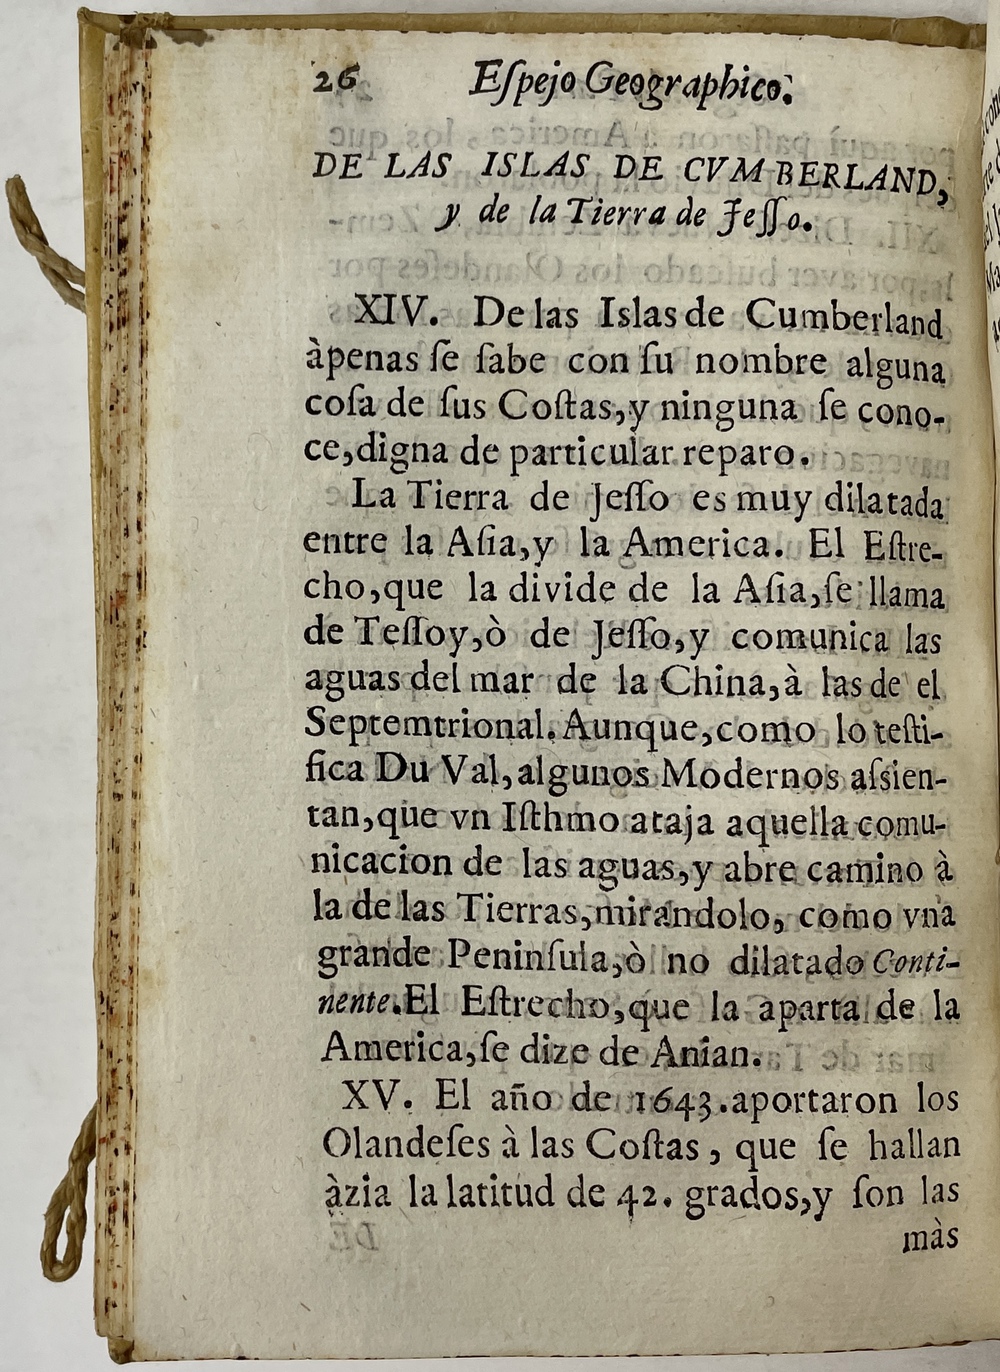 26 Eſpejo Geographico.
DE LAS ISLAS DE CVMBERLAND,
y de la Tierra de Jeſſo.
XIV. De las Islas de Cumberland
àpenas ſe ſabe con ſu nombre alguna
coſa de ſus Coſtas,y ninguna ſe cono-
ce,digna de particular reparo.
La Tierra de Jeſſo es muy dilatada
entre la Aſia,y la America. El Eſtre-
cho,que la divide de la Aſia,ſe llama
de Teſſoy,ò de Jeſſo,y comunica las
aguas del mar de la China,à las de el
Septemtrional.Aunque,como lo teſti-
fica Du Val,algunos Modernos aſsien-
tan,que vn Iſthmo ataja aquella comu-
nicacion de las aguas,y abre camino à
la de las Tierras,mirandolo, como vna
grande Peninſula,ò no dilatado Conti-
nente.El Eſtrecho,que la aparta de la
America,ſe dize de Anian.
XV. El año de 1643.aportaron los
Olandeſes à las Coſtas, que ſe hallan
àzia la latitud de 42. grados,y ſon las
màs